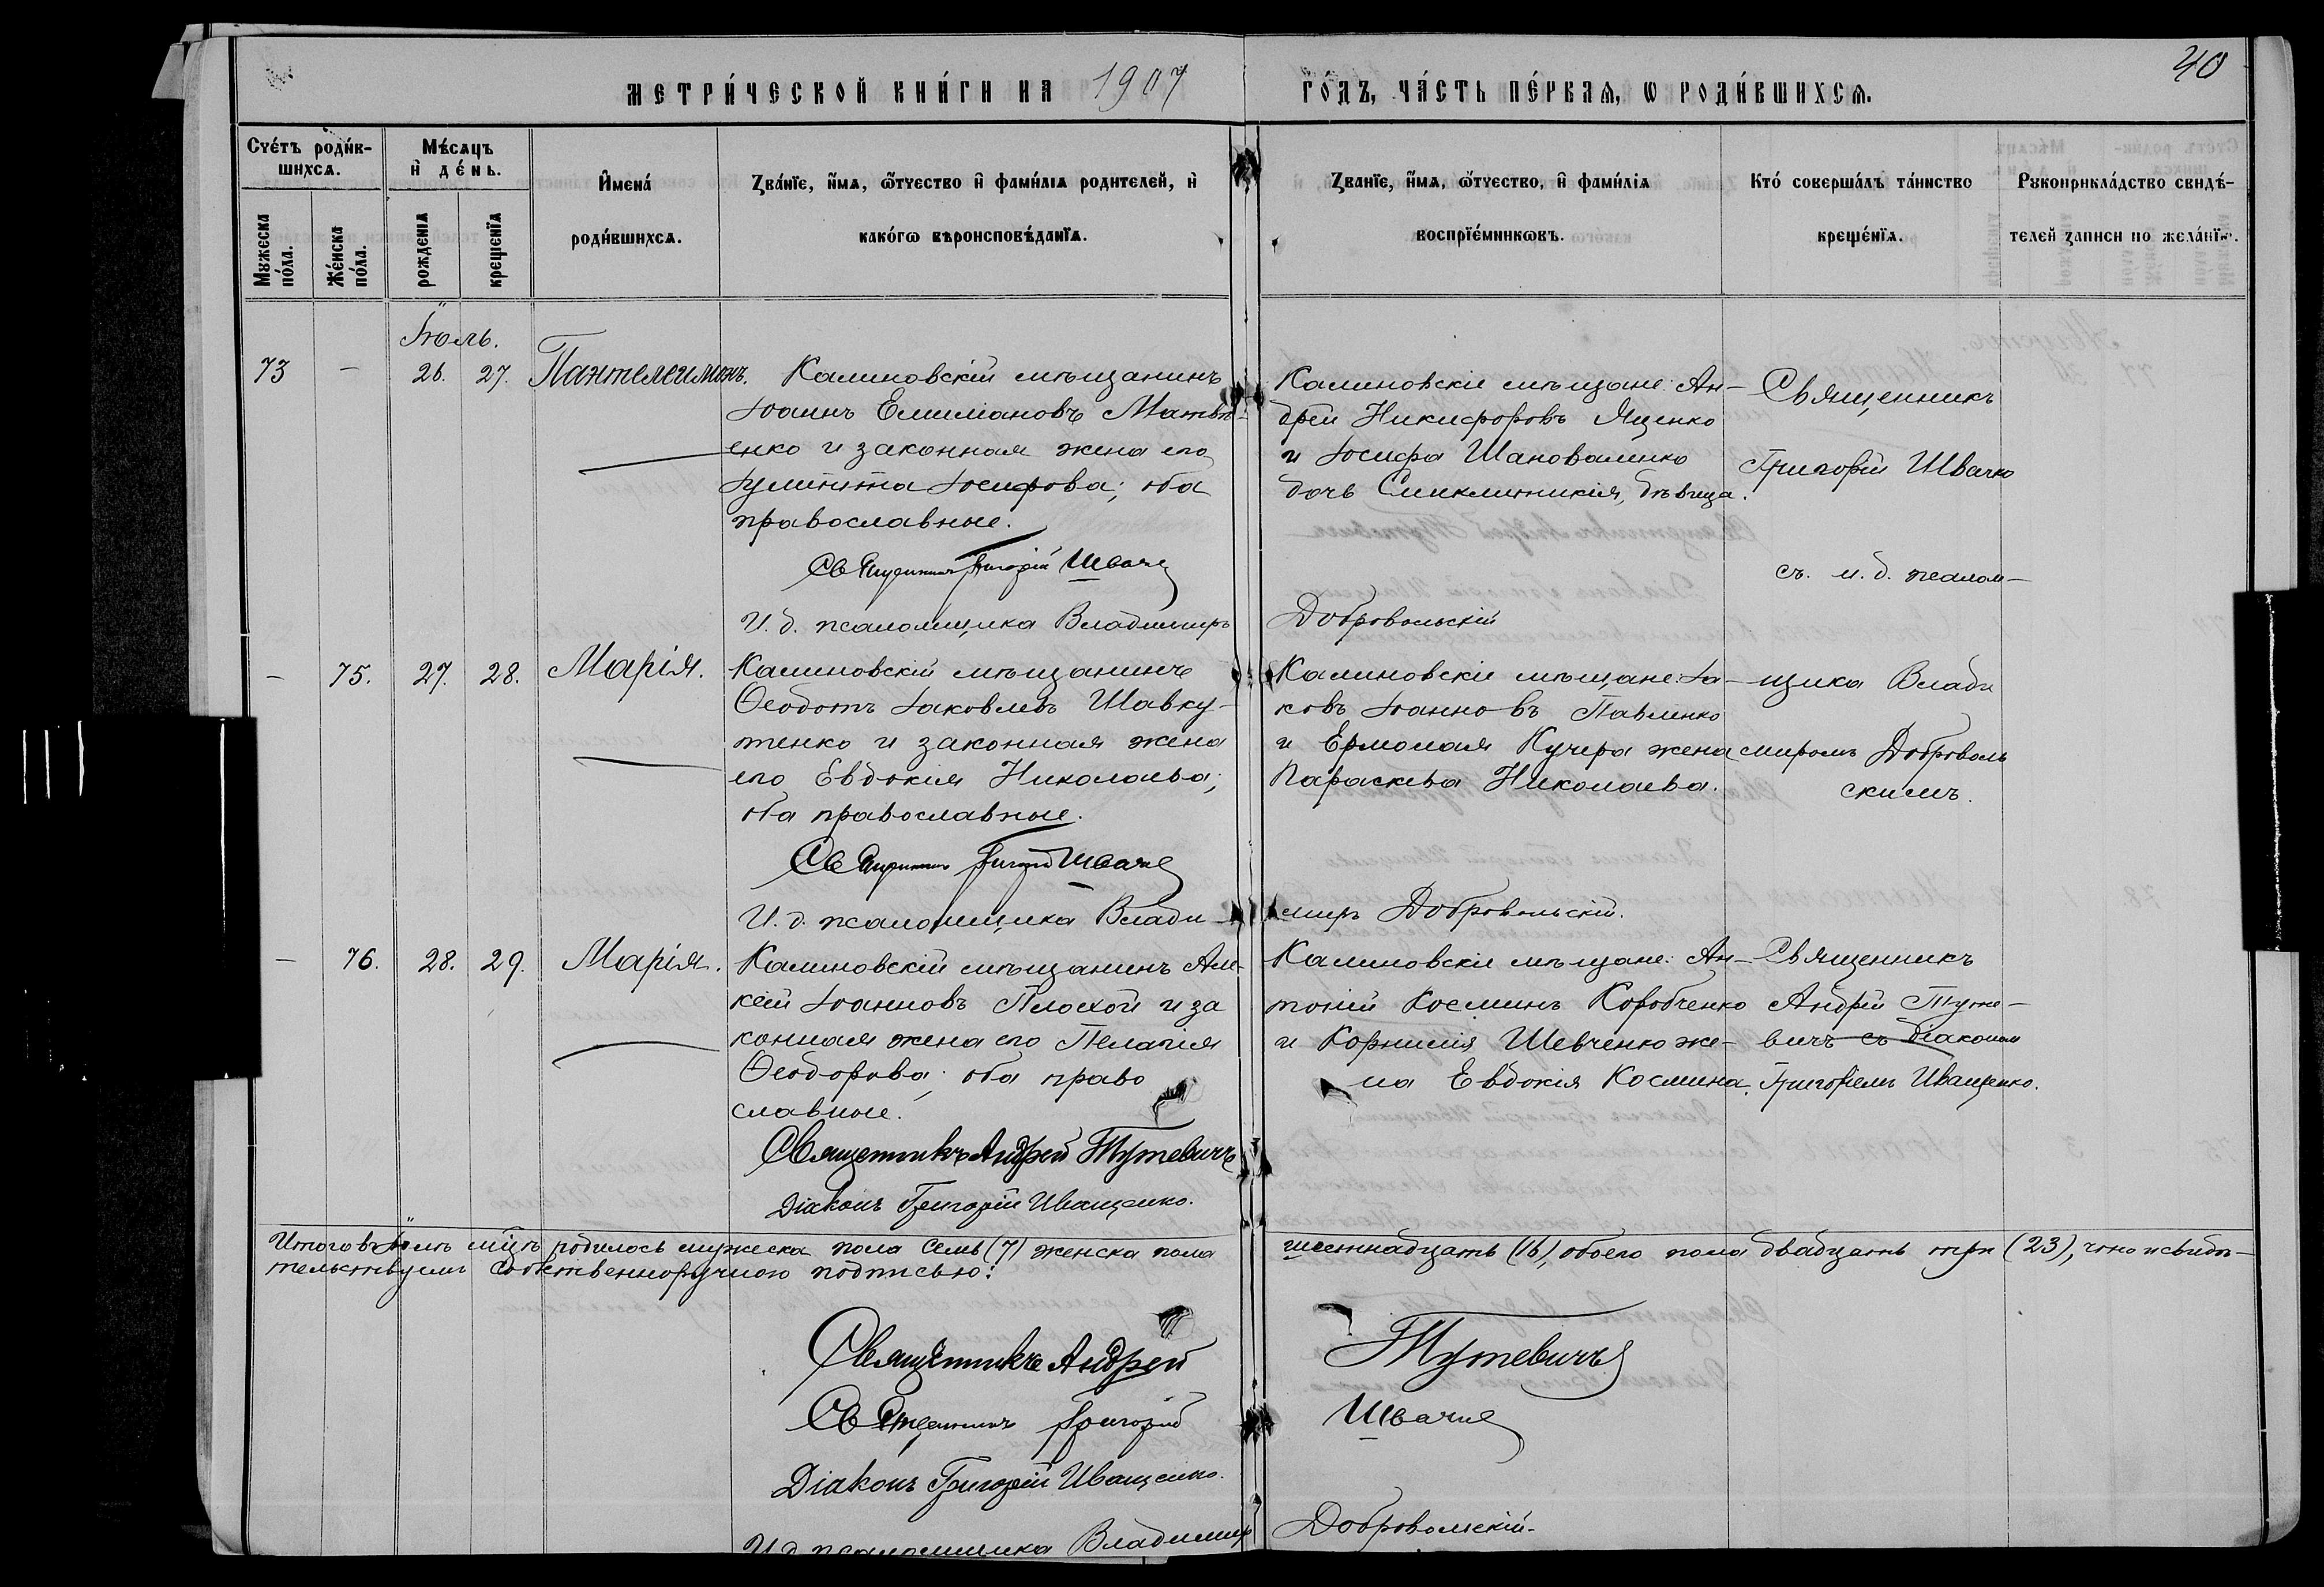 40
МЕТРИ́ЧЕСКОЙ КНИ́ГИ НА 1907 ГО́ДЪ, ЧА́СТЬ ПЕ́РВАѦ, Ѡ РОДИ́ВШИХСѦ.
Сче́тъ роди́в-
шихсѧ.
Мѣ́сѧцъ
и҆ де́нь.
Мꙋжеска
по́ла.
Же́нска
по́ла.
рожденїѧ
крещенїѧ
И҆мена́
роди́вшихсѧ.
Зва́нїе, и҆́мѧ, ѻ҆́тчество и҆ фами́лїѧ родителей, и҆
како́гѡ вѣроисповѣ́данїѧ.
Званїе, и҆́мѧ, ѻ҆́тчество, и҆ фами́лїѧ
воспрїе́мникѡвъ.
Кто́ соверша́лъ та́инство
креще́нїѧ.
Рꙋкоприкла́дство свидѣ́-
телей записи по жела́нїю.
Іюль.
73 — 26. 27. Пантелеимонъ.
Калиновскій мѣщанинъ
Іоаннъ Емиліановъ Матвѣ-
енко и законная жена его
Іулитта Іосифова; оба
православные.
Священникъ Григорій Швачко
И. д. псаломщика Владимиръ Добровольскій
Калиновскіе мѣщане: Ан-
дрей Никифоровъ Яценко
и Іосифа Шаповаленко
дочь Синклитикія, дѣвица.
Священникъ
Григорій Швачко
съ и. д. псалом-
щика Влади
миромъ Доброволь
скимъ.
— 75. 27. 28. Марія.
Калиновскій мѣщанинъ
Ѳеодотъ Іаковлевъ Шавку-
тенко и законная жена
его Евдокія Николаева;
оба православные.
Священникъ Григорій Швачко
И. д. псаломщика Влади-миръ Добровольскій.
Калиновскіе мѣщане: Іа-
ковъ Іоанновъ Павленко
и Ермолая Кучера жена
Параскева Николаева.
— 76. 28. 29. Марія.
Калиновскій мѣщанинъ Але-
ксій Іоанновъ Плохой и за
конная жена его Пелагія
Ѳеодорова; оба право
славные.
Священникъ Андрей Тутевичъ
Діаконъ Григорій Иващенко.
Калиновскіе мѣщане: Ан-
тоній Косминъ Коробченко
и Корнилія Шевченко же-
на Евдокія Космина.
Священникъ
Андрей Туте-
вичъ съ діакономъ
Григоремъ Иващенко.
Итого въ Іюлѣ мцѣ родилось мужеска пола семь (7) женска пола шестнадцать (16), обоего пола двадцать три (23), что и свидѣ-
тельствуемъ собственноручною подписью:
Священникъ Андрей Тутевичъ
Священникъ Григорій Швачко
Діаконъ Григорій Иващенко.
И. д. псаломщика Владимир Добровольскій.